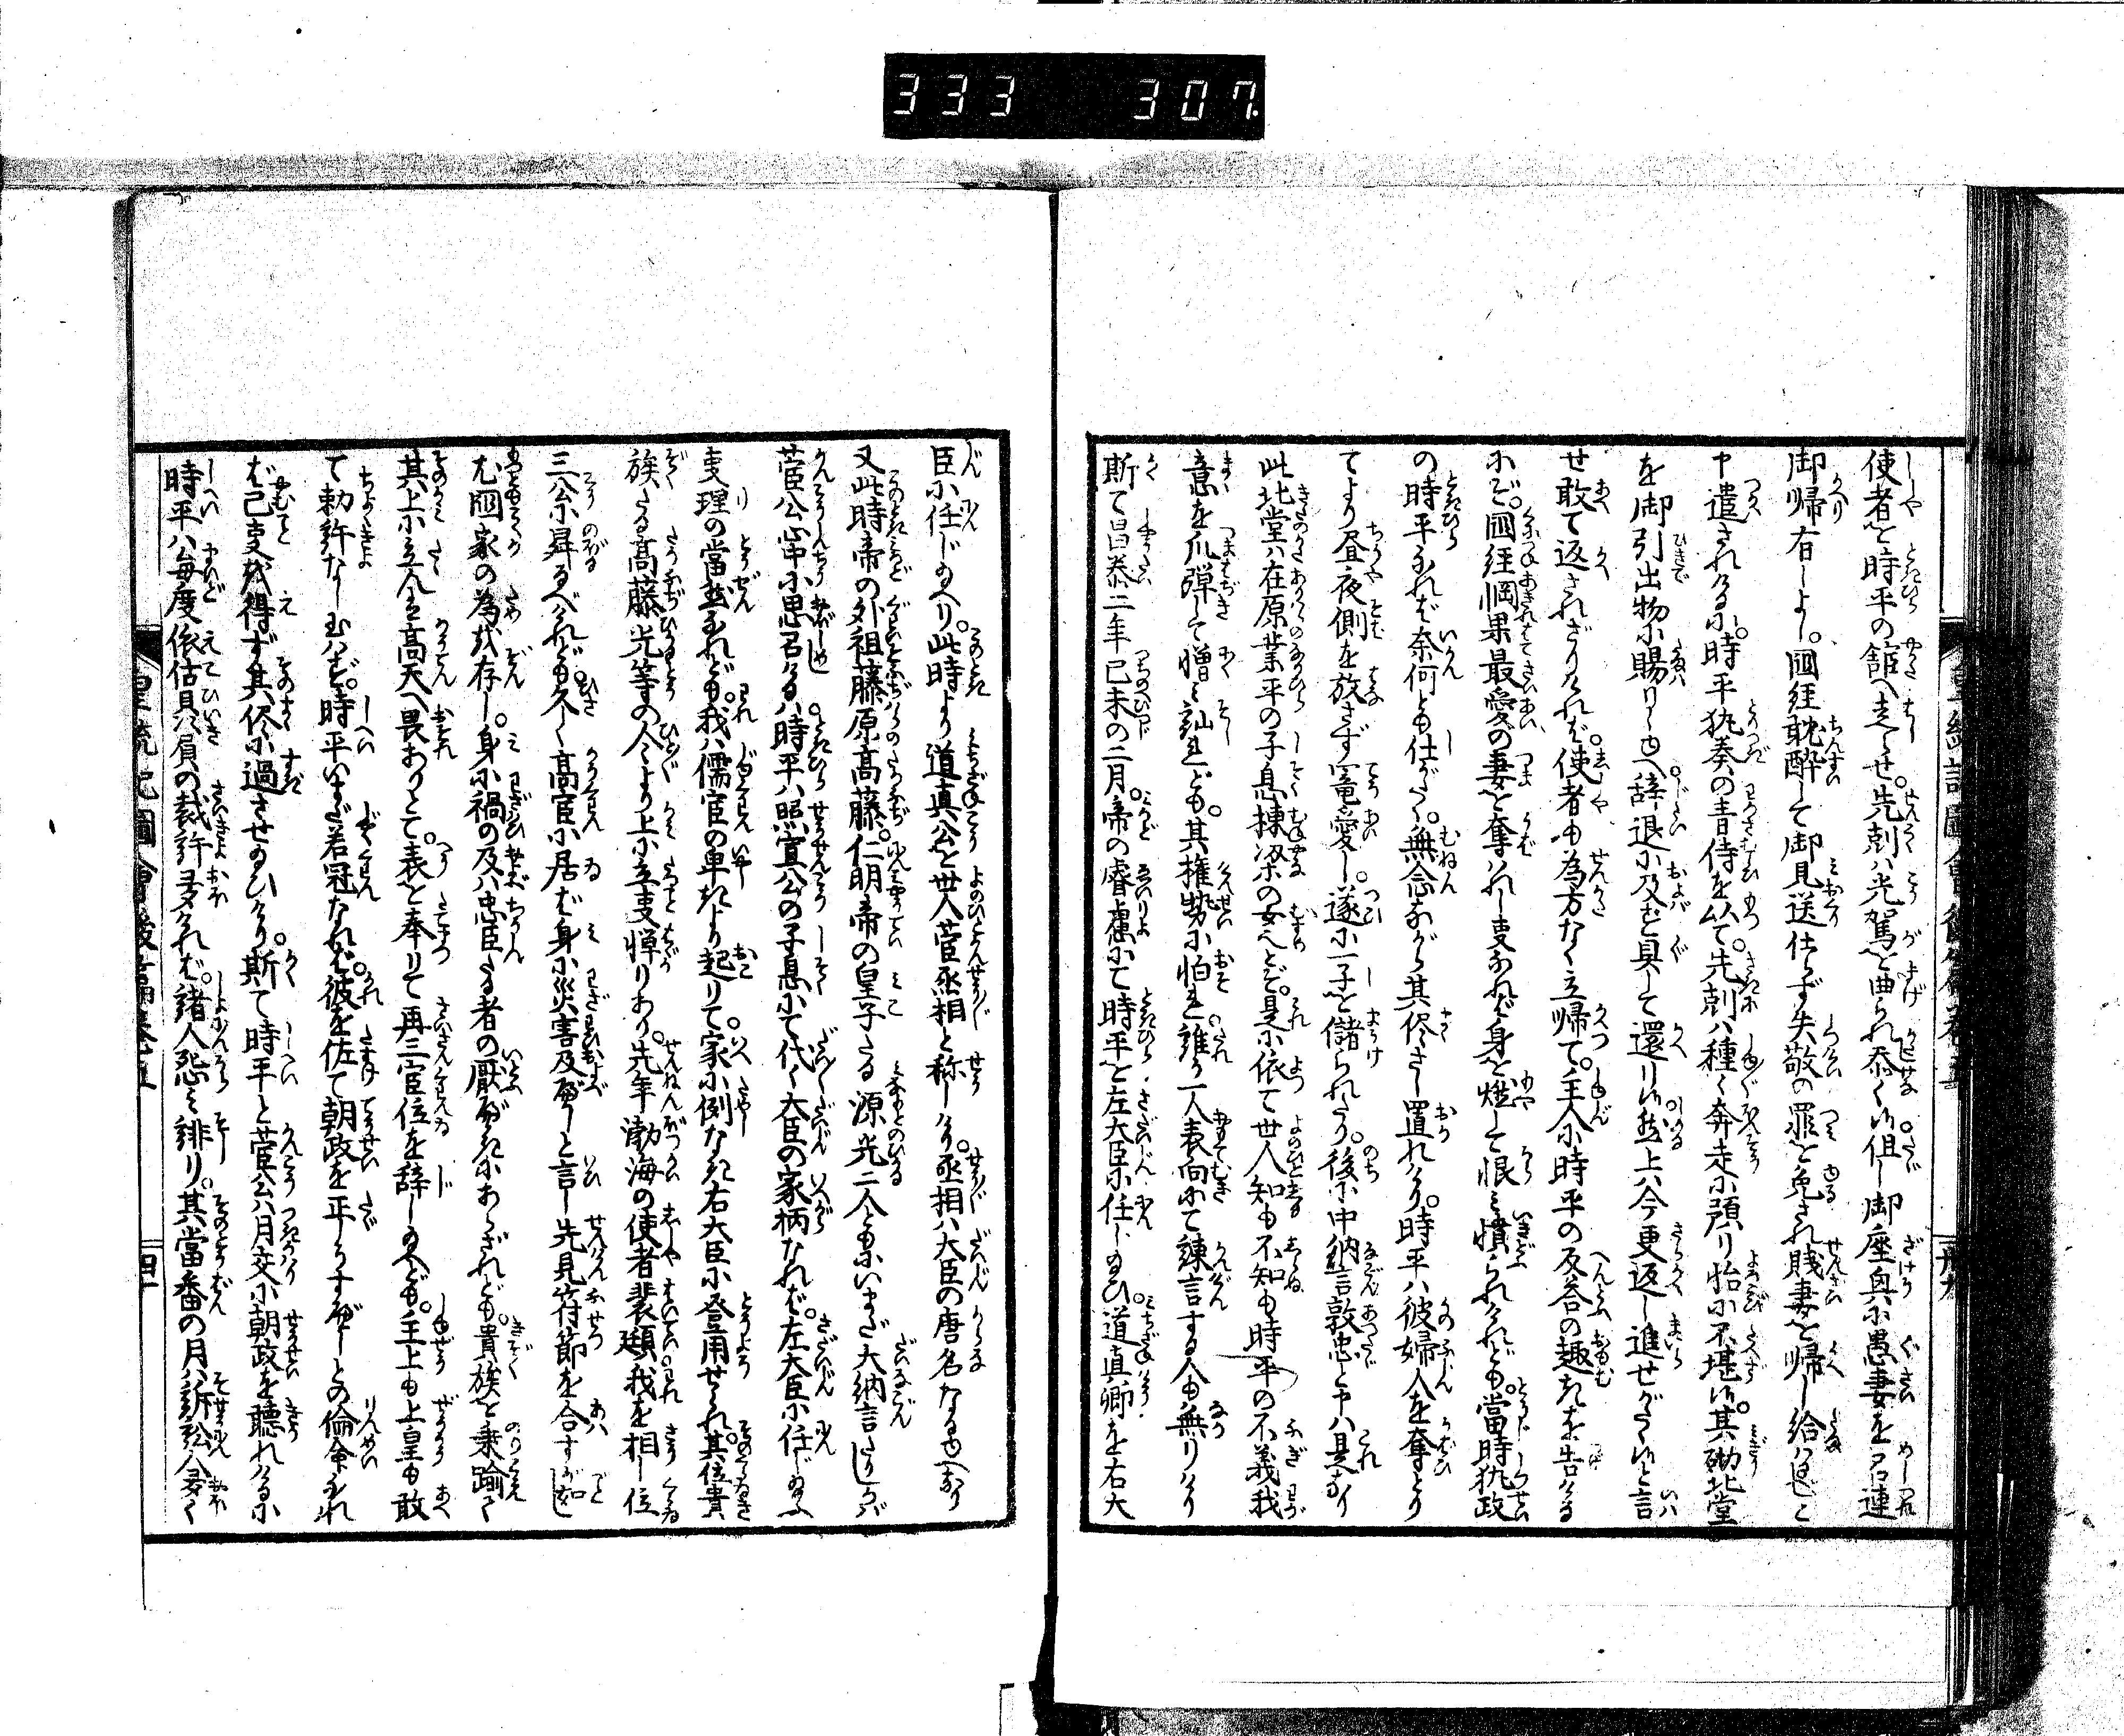 333 307
使者を時平の館へ走らせ。先剋ハ光駕を曲られ忝く候。但し御座興に愚妻を召連
御帰有しよし。國経耽酔して御見送仕らず失敬の罪を免され賤妻を帰し給はれと
申遣されけるに。時平執奏の青侍を以て。先剋ハ種々奔走に預り怡に不堪候。其砌北堂
を御引出物に賜りしゆへ辞退に及ばず具して還り候。然る上ハ今更返し進せがたく候と言
せ敢て返されざりけれバ。使者も為方なく立帰て。主人に時平の反答の趣きを告ける
にぞ。國経惘果最愛の妻を奪ハれし事なれバ身を燃して恨ミ憤られけれども。當時執政
の時平なれバ奈何とも仕がたく。無念ながら其侭さし置れけり。時平ハ彼婦人を奪とり
てより昼夜側を放さず寵愛し。遂に一子を儲られたり。後に中納言敦忠と申ハ是なり
此北堂ハ在原業平の子息棟梁の女とぞ。是に依て世人知も不知も時平の不義我
意を爪弾して憎ミ訕れども。其權勢に怕れ誰一人表向にて諫言する人も無りけり
斯て昌泰二年己未の二月。帝の睿慮にて時平を左大臣に任じ給ひ。道真卿を右大
臣に任じ給へり。此時より道真公を世人菅丞相と称しけり。丞相ハ大臣の唐名なるゆへなり
又此時帝の外祖藤原高藤。仁明帝の皇子たる源光二人ともにいまだ大納言たりしかバ
菅公心中に思召けるハ。時平ハ照宣公の子息にて代々大臣の家柄なれバ。左大臣に任じ給ふ
事理の當然なれども。我ハ儒官の卑きより起りて。家に例なき右大臣に登用せられ。其位貴
族たる高藤光等の人々より上に立事憚りあり。先年渤海の使者裴頲我を相し位
三公に昇るべけれども。久しく高官に居バ身に災害及ぶべしと言し先見符節を合すが如し
尤國家の為を存し。身に禍の及ハ忠臣たる者の厭べきにあらざれども。貴族を乗踰て
其上に立んも高天へ畏ありとて。表を奉りて再三官位を辞し給へども。主上も上皇も敢
て勅許なし玉ハず。時平いまだ若冠なれバ。彼を佐て朝政を平かにすべしとの倫命なれ
ば已事を得ず其侭に過させ給ひけり。斯て時平と菅公六月交に朝政を聴れけるに
時平ハ毎度依估贔屓の裁許多けれバ。諸人怨ミ誹り。其當番の月ハ訴訟人多く
皇統記圖會後篇巻五
四十